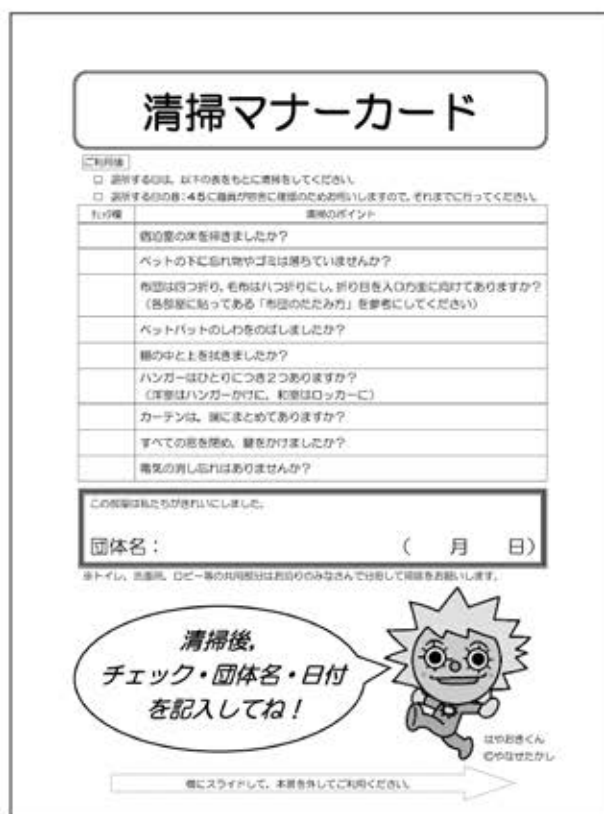 清掃マナーカード
ご利用後
□ 退所する日は、以下の表をもとに清掃をしてください。
□ 退所する日の8:45に職員が宿舎に確認のためお伺いしますので、それまでに行ってください。
ﾁｪｯｸ欄 清掃のポイント
宿泊室の床を掃きましたか?
ベットの下に忘れ物やゴミは落ちていませんか?
布団は四つ折り、毛布は八つ折りにし、折り目を入口方面に向けてありますか?
(各部屋に貼ってある「布団のたたみ方」を参考にしてください)
ベットパットのしわをのばしましたか?
棚の中と上を拭きましたか?
ハンガーはひとりにつき2つありますか?
(洋室はハンガーかけに、和室はロッカーに)
カーテンは、端にまとめてありますか?
すべての窓を閉め、鍵をかけましたか?
電気の消し忘れはありませんか?
この部屋は私たちがきれいにしました。
団体名: ( 月 日)
※トイレ、洗面所、ロビー等の共用部分はお泊りのみなさんで分担して掃除をお願いします。
清掃後,
チェック・団体名・日付
を記入してね!
はやおきくん
©やなせたかし
横にスライドして、本票を外してご利用ください。